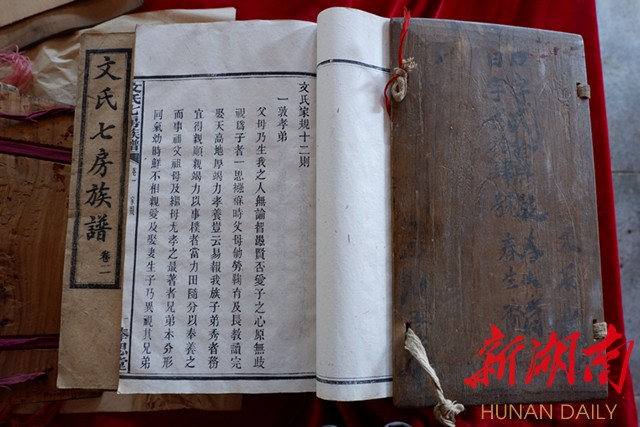 文氏家規十二則
一敦孝弟
父母乃生我之人無論智愚賢否愛子之心原無歧
視爲子者一思襁褓時父母劬勞鞠育及長教讀完
娶天高地厚竭力孝養豈云易報我族子弟秀者務
宜得親順親竭力以事樸者當力田隨分以奉養之
而事祖父祖母及繼母尤孝之最著者兄弟本分形
同氣幼時鮮不相親愛及娶妻生子乃異視其兄弟
文氏七房族譜
卷一
家規
思堂
文氏七房族譜
卷二
春生
新湖南
HUNAN DAILY